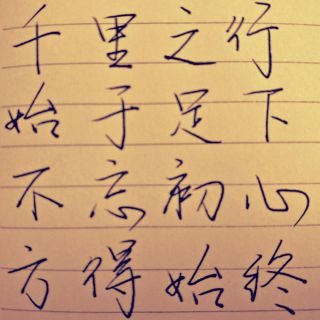 千里之行
始于足下
不忘初心
方得始终